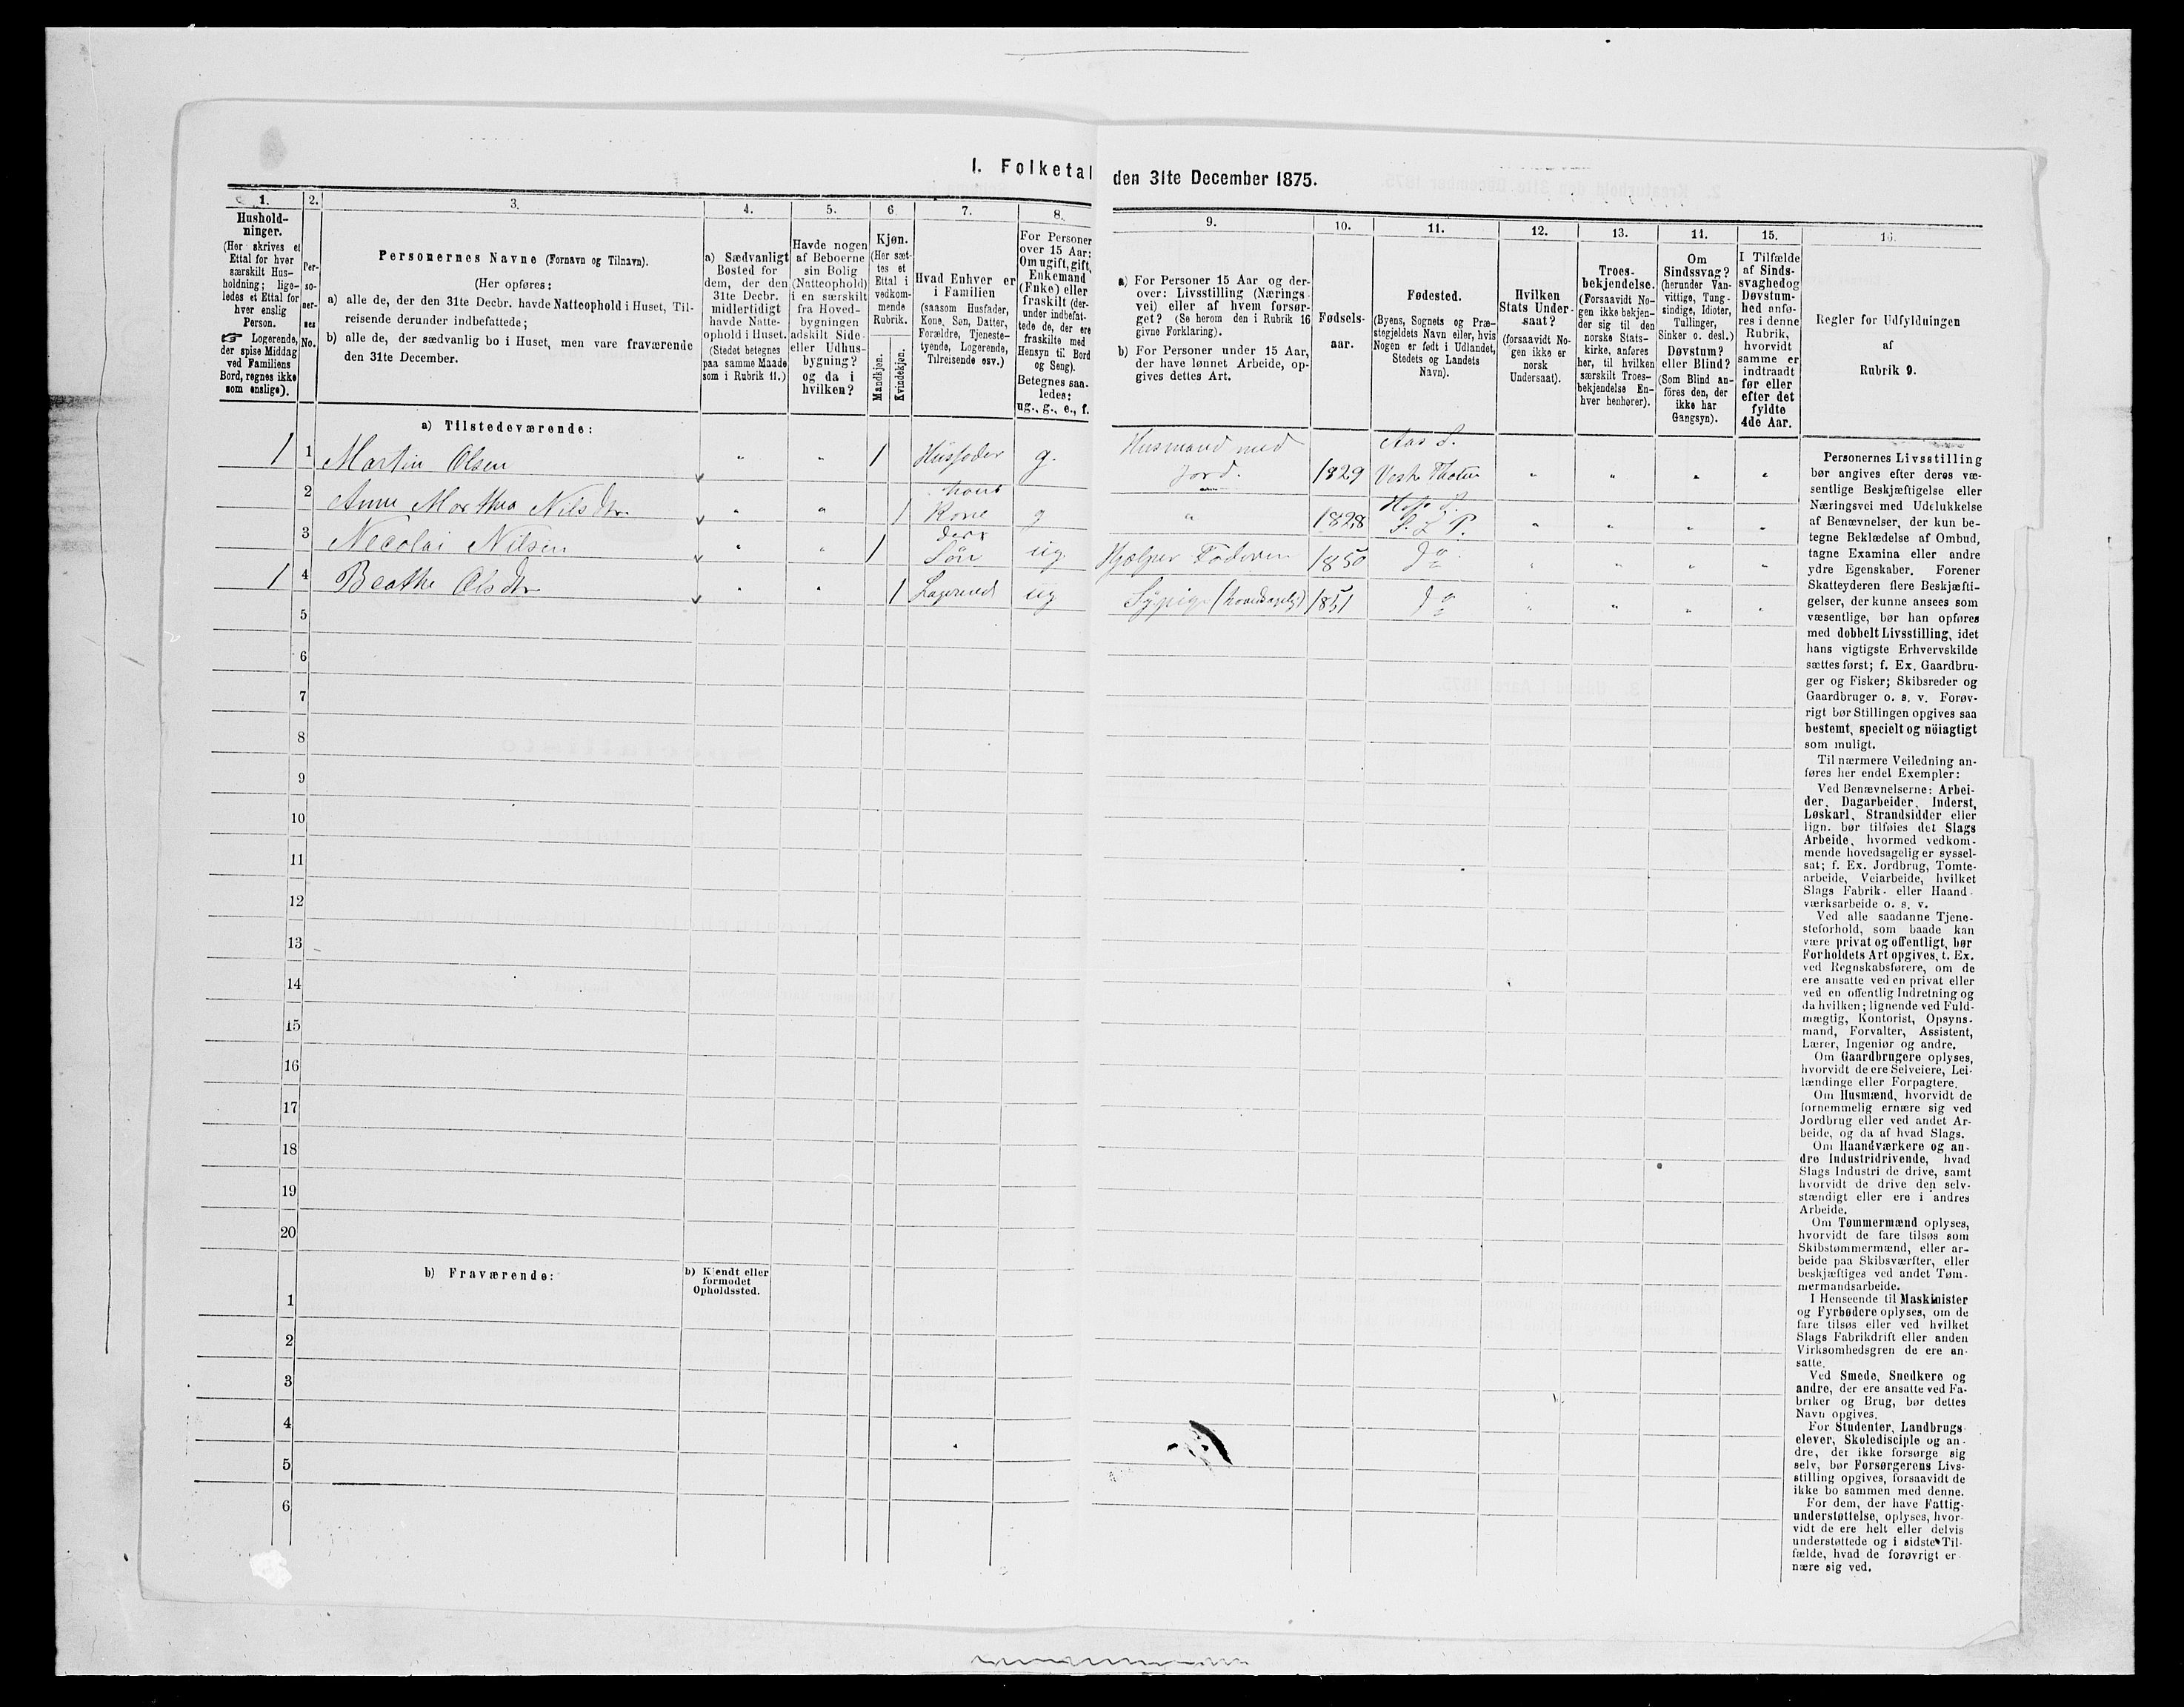 1. Folketal den 31te December 1875.
1.
Hushold-
ninger.
(Her skrives et
Ettal for hver
særskilt Hus-
holdning; lige-
ledes et Ettal for
hver enslig
Person.
☞ Logerende,
der spise Middag
ved Familiens
Bord, regnes ikke
som enslige).
2.
Per-
so-
ner-
nes
No.
3.
Personernes Navne (Fornavn og Tilnavn).
(Her opføres:
a) alle de, der den 31te Decbr. havde Natteophold i Huset, Til-
reisende derunder indbefattede;
b) alle de, der sædvanlig bo i Huset, men vare fraværende
den 31te December.
4.
a) Sædvanligt
Bosted for
dem, der den
31te Decbr.
midlertidigt
havde Natte-
ophold i Huset.
(Stedet betegnes
paa samme Maade
som i Rubrik 11.)
5.
Havde nogen
af Beboerne
sin Bolig
(Natteophold)
i en særskilt
fra Hoved-
bygningen
adskilt Side-
eller Udhus-
bygning?
og da i
hvilken?
6
Kjøn.
(Her sæt-
tes et
Ettal i
vedkom-
mende
Rubrik.
Mandkjøn.
Kvindekjøn.
7.
Hvad Enhver er
i Familien
(saasom Husfader,
Kone, Søn, Datter,
Forældre, Tjeneste-
tyende, Logerende,
Tilreisende osv.)
8.
For Personer
over 15 Aar:
Om ugift, gift,
Enkemand
(Enke) eller
fraskilt (der-
under indbefat-
tede de, der ere
fraskilte med
Hensyn til Bord
og Seng).
Betegnes saa-
ledes:
ug., g., e., f.
9.
a) For Personer 15 Aar og der-
over: Livsstilling (Nærings-
vei) eller af hvem forsør-
get? (Se herom den i Rubrik 16
givne Forklaring).
b) For Personer under 15 Aar,
der have lønnet Arbeide, op-
gives dettes Art.
10.
Fødsels-
aar.
11.
Fødested.
(Byens, Sognets og Præ-
stegjeldets Navn eller, hvis
Nogen er født i Udlandet,
Stedets og Landets
Navn).
12.
Hvilken
Stats Under-
saat?
(forsaavidt No-
gen ikke er
norsk
Undersaat).
13.
Troes-
bekjendelse.
(Forsaavidt No-
gen ikke bekjen-
der sig til den
norske Stats-
kirke, anføres
her, til hvilken
særskilt Troes-
bekjendelse En-
hver henhører).
14.
Om
Sindssvag?
(herunder Van-
vittige, Tung-
sindige, Idioter,
Tullinger,
Sinker o. desl.)
Døvstum?
eller Blind?
(Som Blind an-
föres den, der
ikke har
Gangsyn).
15.
I Tilfælde
af Sinds-
svaghed og
Døvstum-
hed anfø-
res i denne
Rubrik,
hvorvidt
samme er
indtraadt
før eller
efter det
fyldte
4de Aar.
16.
Regler for Udfyldningen
af
Rubrik 9.
a) Tilstedeværende:
1 1 Martin Olsen " " 1 Husfader g. Husmand med Jord. 1829 Aas S. Vestre Thoten " " " "
2 Anne Marthea Nilsdtr. " " 1 hans Kone g " 1828 S. L. P. " " " "
3 Necolai Nilsen " " 1 Søn ug. Hjælper Faderen 1850 do " " " "
1 4 Beathe Olsdtr " " 1 Logerende ug Sypige (hovedsagelig) 1851 do " " " "
5
6
7
8
9
10
11
12
13
14
15
16
17
18
19
20
b) Fraværende:
b) Kjendt eller
formodet
Opholdssted.
1
2
3
4
5
6
Personernes Livsstilling
bør angives efter deres væ-
sentlige Beskjæftigelse eller
Næringsvei med Udelukkelse
af Benævnelser, der kun be-
tegne Beklædelse af Ombud,
tagne Examina eller andre
ydre Egenskaber. Forener
Skatteyderen flere Beskjæfti-
gelser, der kunne ansees som
væsentlige, bør han opføres
med dobbelt Livsstilling, idet
hans vigtigste Erhvervskilde
sættes først; f. Ex. Gaardbru-
ger og Fisker; Skibsreder og
Gaardbruger o. s. v. Forøv-
rigt bør Stillingen opgives saa
bestemt, specielt og nöiagtigt
som muligt.
Til nærmere Veiledning an-
føres her endel Exempler:
Ved Benævnelserne: Arbei-
der, Dagarbeider, Inderst,
Løskarl, Strandsidder eller
lign. bør tilføies det Slags
Arbeide, hvormed vedkom-
mende hovedsagelig er syssel-
sat; f. Ex. Jordbrug, Tomte-
arbeide, Veiarbeide, hvilket
Slags Fabrik- eller Haand-
værksarbeide o. s. v.
Ved alle saadanne Tjene-
steforhold, som baade kan
være privat og offentligt, bør
Forholdets Art opgives, t. Ex.
ved Regnskabsførere, om de
ere ansatte ved en privat eller
ved en offentlig Indretning og
da hvilken; lignende ved Fuld-
mægtig, Kontorist, Opsyns-
mand, Forvalter, Assistent,
Lærer, Ingeniør og andre.
Om Gaardbrugere oplyses,
hvorvidt de ere Selveiere, Lei-
lændinge eller Forpagtere.
Om Husmænd, hvorvidt de
fornemmelig ernære sig ved
Jordbrug eller ved andet Ar-
beide, og da af hvad Slags.
Om Haandværkere og an-
dre Industridrivende, hvad
Slags Industri de drive, samt
hvorvidt de drive den selv-
stændigt eller ere i andres
Arbeide.
Om Tømmermænd oplyses,
hvorvidt de fare tilsøs som
Skibstømmermænd, eller ar-
beide paa Skibsværfter, eller
beskjæftiges ved andet Tøm-
mermandsarbeide.
I Henseende til Maskinister
og Fyrbødere oplyses, om de
fare tilsøs eller ved hvilket
Slags Fabrikdrift eller anden
Virksomhedsgren de ere an-
satte.
Ved Smede, Snedkere og
andre, der ere ansatte ved Fa-
briker og Brug, bør dettes
Navn opgives.
For Studenter, Landbrugs-
elever, Skoledisciple og an-
dre, der ikke forsørge sig
selv, bør Forsørgerens Livs-
stilling opgives, forsaavidt de
ikke bo sammen med denne.
For dem, der have Fattig-
understøttelse, oplyses, hvor-
vidt de ere helt eller delvis
understøttede og i sidste Til-
fælde, hvad de forøvrigt er-
nære sig ved.